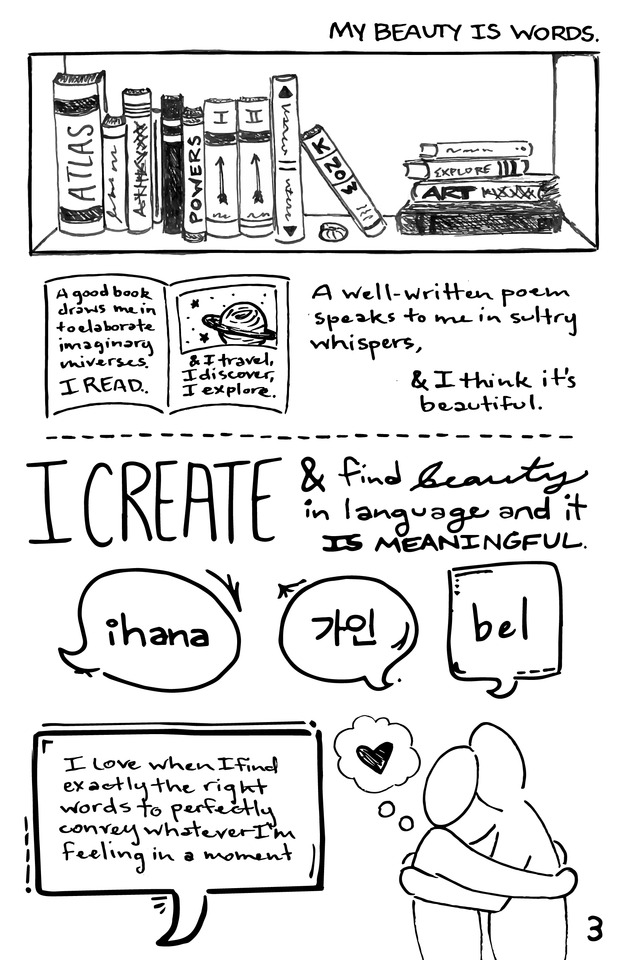 MY BEAUTY IS WORDS.
ATLAS
POWERS
I
II
K
Z013
EXPLORE
ART
A good book
draws me in
to elaborate
imaginary
universes.
I READ.
& I travel,
I discover,
I explore.
A well-written poem
speaks to me in sultry
whispers,
& I think it's
beautiful.
I CREATE
& find beauty
in language and it
IS MEANINGFUL.
ihana
가인
bel
I love when I find
exactly the right
words to perfectly
convey whatever I'm
feeling in a moment
3